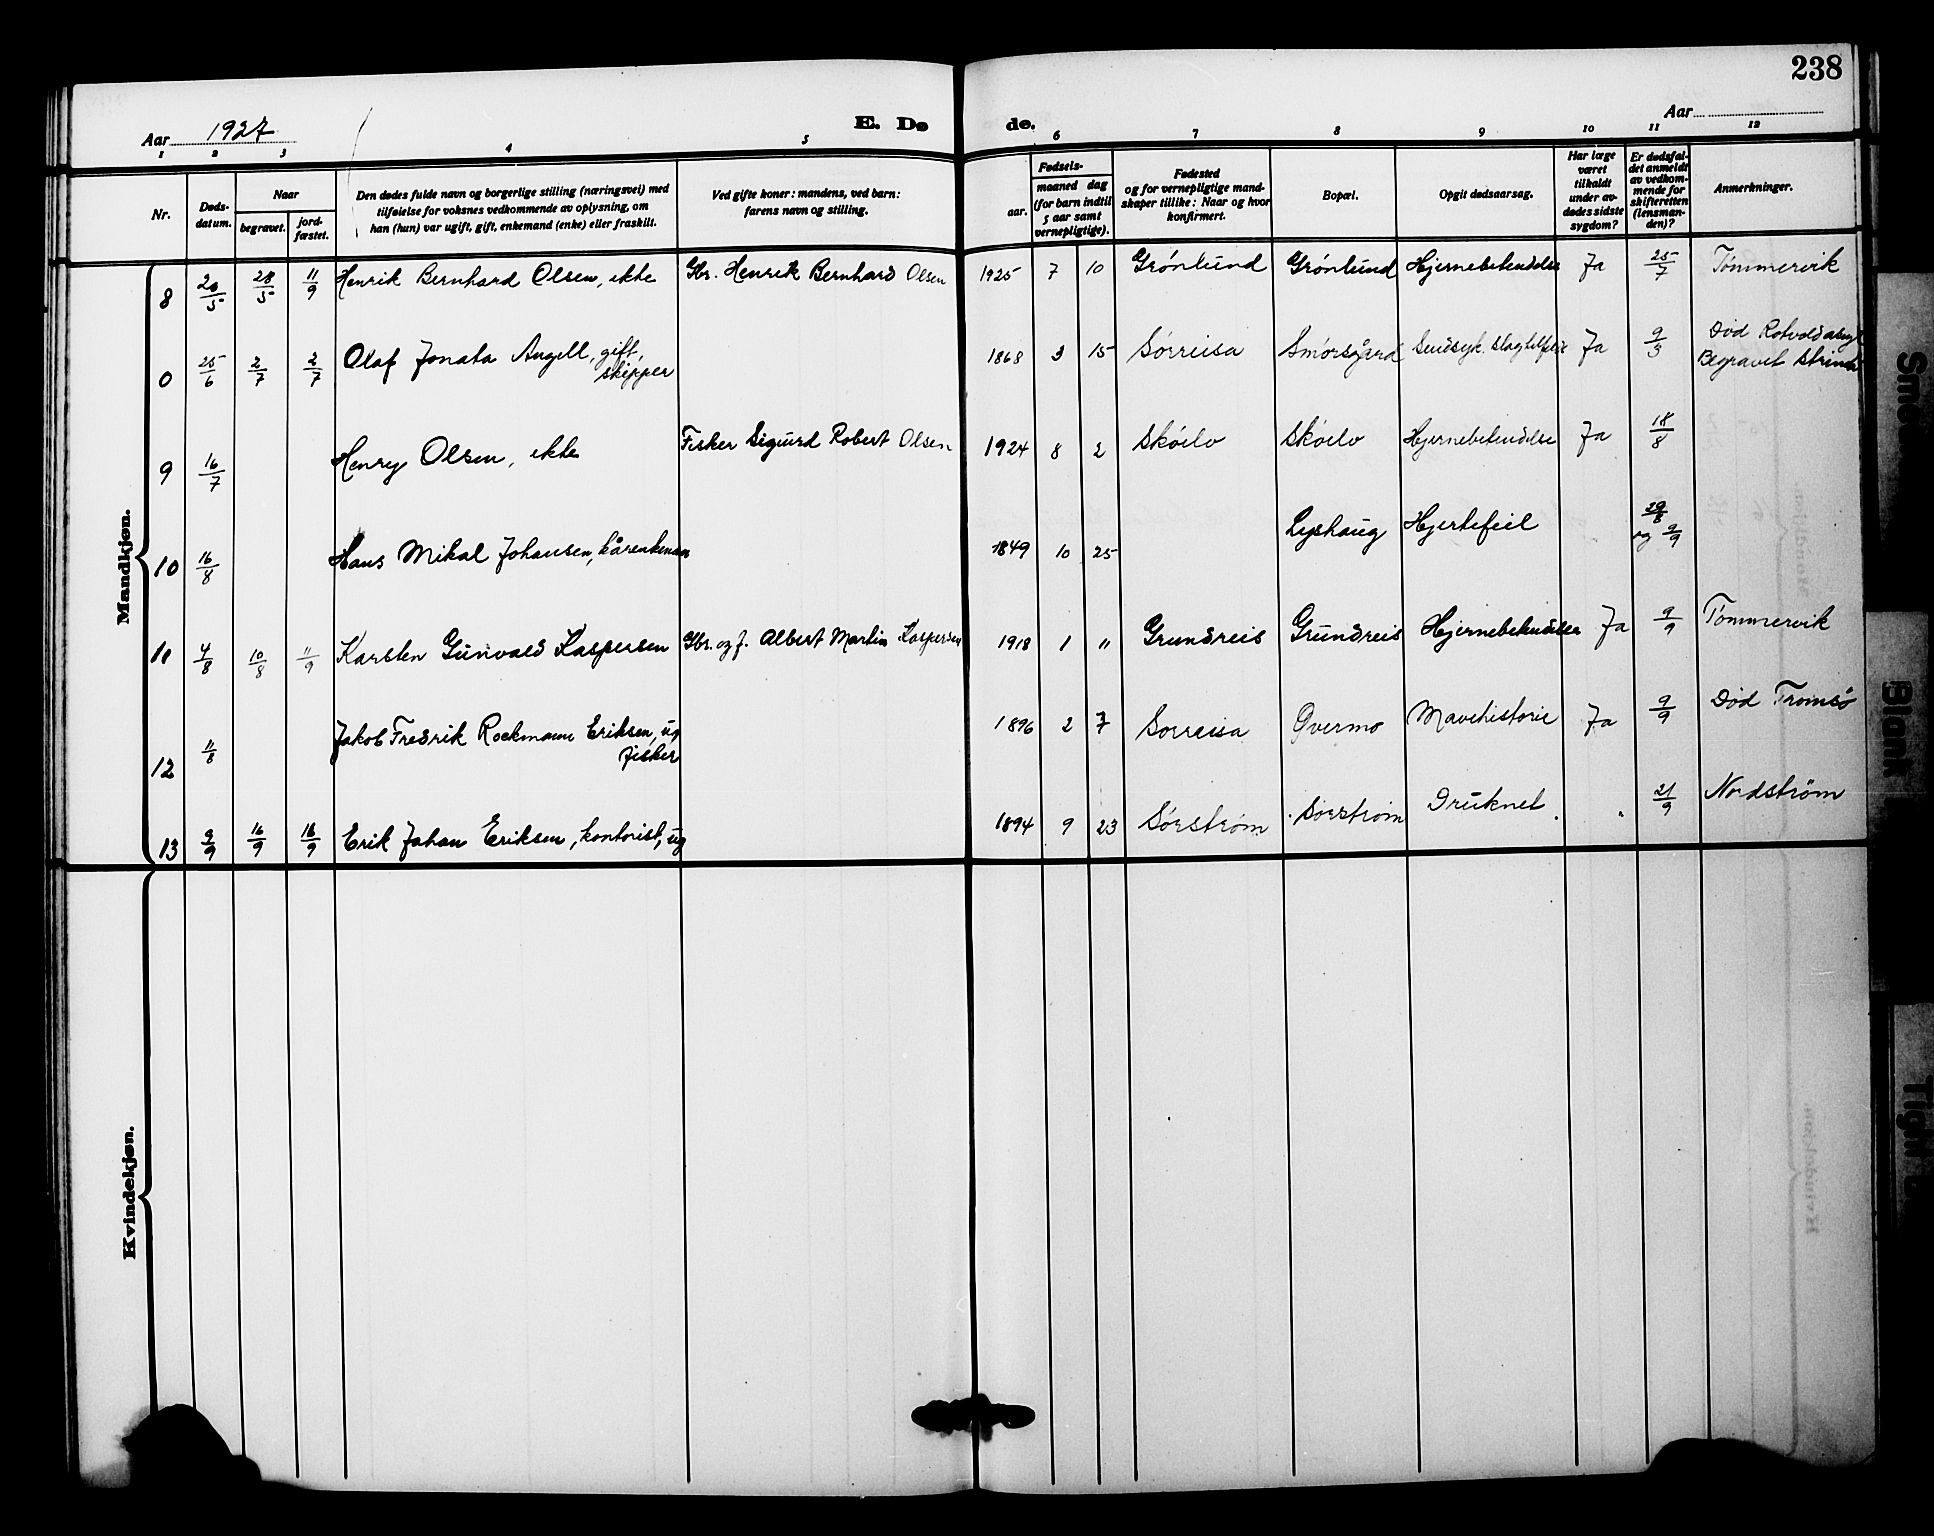 238
Aar 1927
E. Dø
de.
Aar
1 2 3 4 5 6 7 8 9 10 11 12
Nr.
Døds-
datum.
Naar
begravet.
jord-
fæstet.
Den dødes fulde navn og borgerlige stilling (næringsvei) med
tilføielse for voksnes vedkommende av oplysning, om
han (hun) var ugift, gift, enkemand (enke) eller fraskilt.
Ved gifte koner: mandens, ved barn:
farens navn og stilling.
Fødsels-
aar.
maaned dag
(for barn indtil
5 aar samt
vernepligtige).
Fødested
og for vernepligtige mand-
skaper tillike: Naar og hvor
konfirmert.
Bopæl.
Opgit dødsaarsag.
Har læge
været
tilkaldt
under av-
dødes sidste
sygdom?
Er dødsfal-
det anmeldt
av vedkom-
mende for
skifteretten
(lensman-
den)?
Anmerkninger.
Mandkjøn.
8 20/5 28/5 11/9 Henrik Bernhard Olsen, ekte Gbr. Henrik Bernhard Olsen 1925 7 10 Grønlund Grønlund Hjernebetendelse Ja 25/7 Tømmervik
0 25/6 2/7 2/7 Olaf Jonata Angell, gift, 1868 3 15 Sørreisa Smørsgård Sindsyk. Slagtilfelle Ja 9/3 Død Rotvold asyl
skipper Begravet Strinda
9 16/7 Henry Olsen, ekte Fisker Sigurd Robert Olsen 1924 8 2 Skøelv Skøelv Hjernebetendelse Ja 18/8
10 16/8 Hans Mikal Johansen, kårenkemann 1849 10 25 Lyshaug Hjertefeil 29/8
og 9/9
11 4/8 10/8 11/9 Karsten Gunvald Kaspersen Gbr. og f. Albert Martin Kaspersen 1918 1 " Grundreis Grundreis Hjernebetendelse Ja 9/9 Tømmervik
12 11/8 Jakob Fredrik Rockmann Eriksen, ug 1896 2 7 Sørreisa Øvermo Mavehistorie Ja 9/9 Død Tromsø
fisker
13 9/9 16/9 16/9 Erik Johan Eriksen, kontorist, ug 1894 9 23 Sørstrøm Sørstrøm Druknet . " 21/9 Nordstrøm
Kvindekjøn.